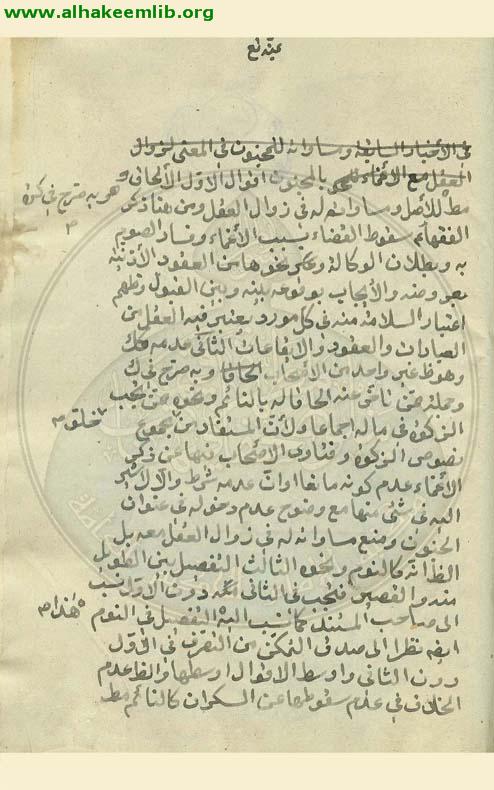 www.alhakeemlib.org
في الأخبار السابقة ومساواته للمجنون في المعنى لزوال
العقل مع الأغماء بالمجنون اقوال الاوّل الألحاق
وهو به صرّح في كره
مط للأصل ومساواته له في زوال العقل ومن هنا ذكر
الفقهاء سقوط القضاء بسبب الأغماء وفساد الصوم
به وبطلان الوكالة وغيره نحوها من العقود الأذنيّه
بعروضه والأيجاب بوقوعه بينه وبين القبول
اعتبار السلامة منه في كل مورد يعتبر فيه العقل من
العبادات والعقود والايقاعات الثاني عدمه
وهو ظ غير واحد من الأصحاب وبه صرّح في ك
وجملة ممّن تأخّر عنه الحاقا له بالنائم ونحوه ممّن يجب
الزكوة في ماله اجماعا ولأنّ المستفاد من مجموع
نصوص الزكوة وفتاوى الأصحاب فيها عن ذكر
الأغماء عدم كونه مانعا او انّ عدمه شرط والّا لأشير
اليه في شئ منها مع وضوح عدم دخوله في عنوان
الجنون ومنع مساواته له في زوال العقل معه بل
الظ انّه كالنوم ونحوه الثالث التفصيل بين الطويل
منه والقصير فتجب في الثاني دون الاوّل نسب
الى صاحب المستند كما نسب اليه التفصيل في النوم
ايضا نظرا الى صدق التمكّن من التصرف في الأوّل
دون الثاني واوسط الاقوال اوسطها والظ عدم
الخلاف في عدم سقوطها عن السكران كالنائم مط